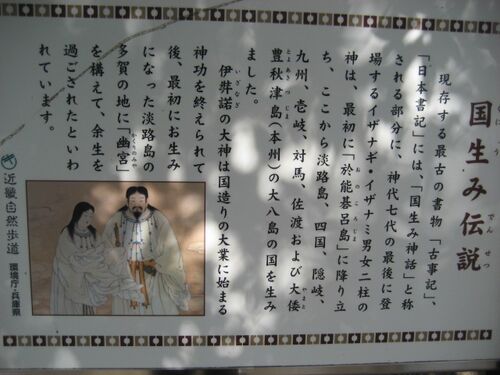 国生み伝説
現存する最古の書物「古事記」、
「日本書記」には、「国生み神話」と称
される部分に、神代七代の最後に登
場するイザナギ・イザナミ男女二柱の
神は、最初に「於能碁呂島」に降り立
ち、ここから淡路島、四国、隠岐、
九州、壱岐、対馬、佐渡および大倭
豊秋津島(本州)の大八島の国を生み
ました。
伊弉諾の大神は国造りの大業に始まる
神功を終えられて
後、最初にお生み
になった淡路島の
多賀の地に「幽宮」
を構えて、余生を
過ごされたといわ
れています。
近畿自然歩道
環境庁・兵庫県